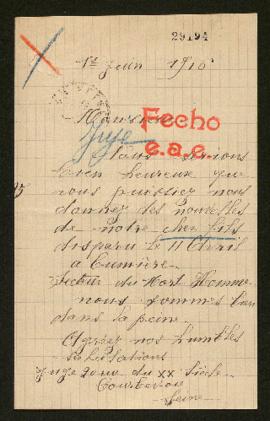 29194
1er Juin 1916
Monsieur
Fecho
e.a.e.
Juge
Nous serions
bien heureux que
vous puissiez nous
donner des nouvelles
de notre cher fils
disparu le 11 Avril
a Cumière
secteur du Mort Homme
nous sommes bien
dans la peine
Agréez nos humbles
Salutations
Juge 20 rue du XX Siècle
Courbevoie
Seine